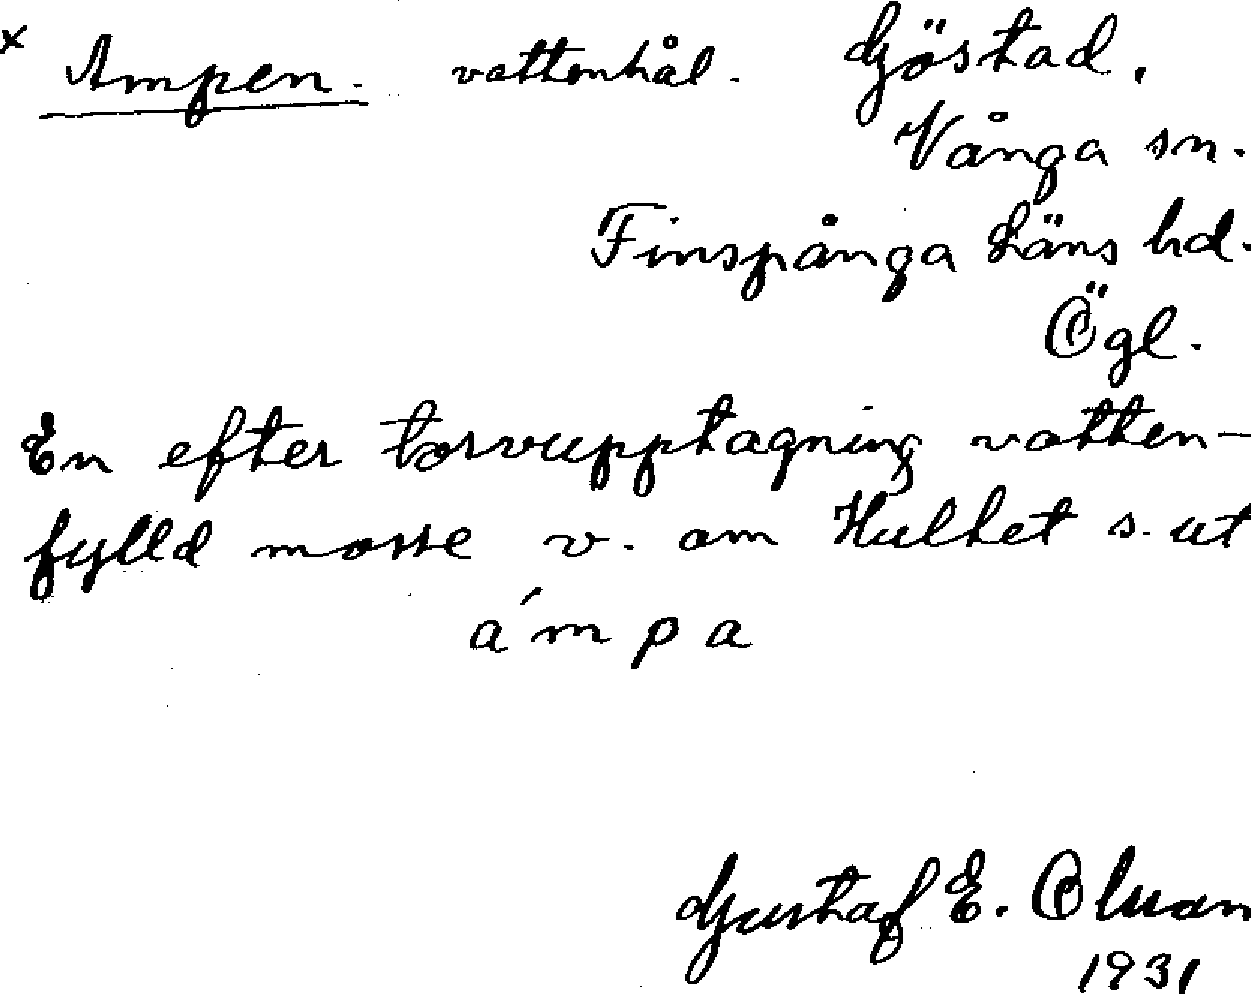 x Ampen. vattenhål. Göstad.
Vånga sn.
Finspånga Läns hd.
Ögl.
En efter torvupptagning vatten-
fylld mosse v. om Hulket s. ut
a´mpa
Gustaf E. Olsson
1931